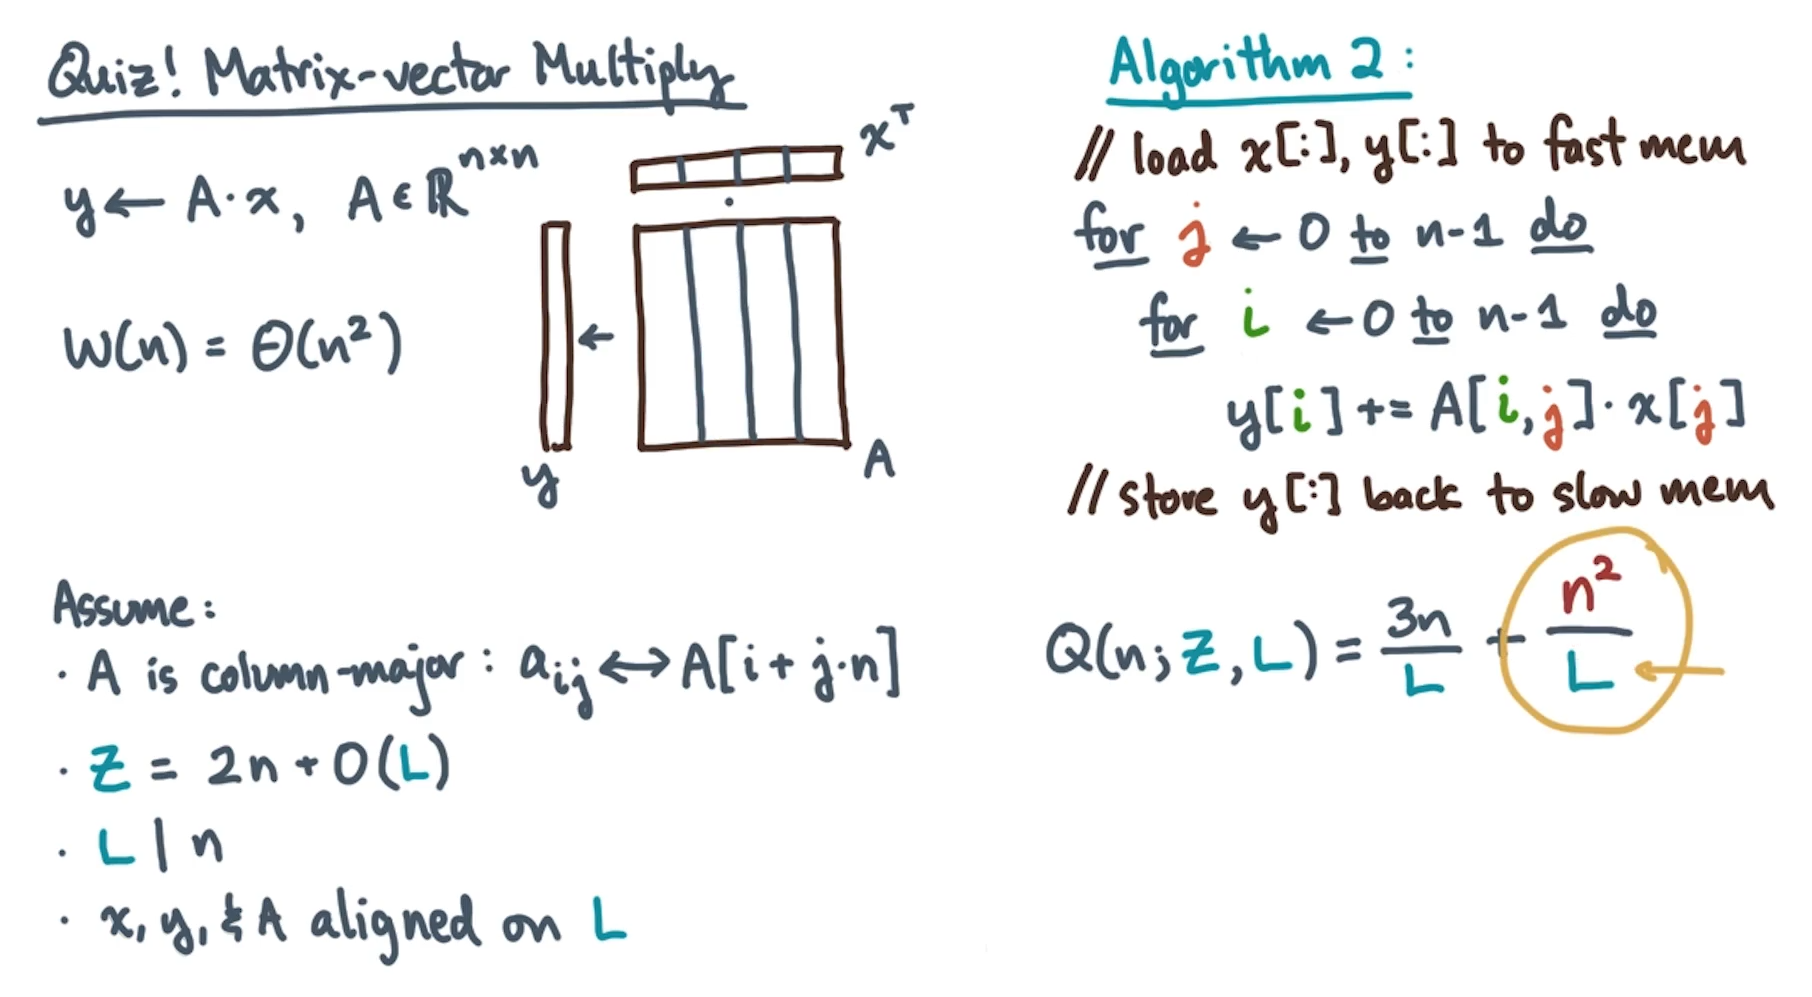 Quiz! Matrix-vector Multiply
y ← A·x, A ∈ ℝⁿˣⁿ
W(n) = Θ(n²)
xᵀ
·
←
y
A
Assume:
· A is column-major: aᵢⱼ ↔ A[i + j·n]
· Z = 2n + O(L)
· L | n
· x, y, & A aligned on L
Algorithm 2:
// load x[:], y[:] to fast mem
for j ← 0 to n-1 do
for i ← 0 to n-1 do
y[i] += A[i,j]·x[j]
// store y[:] back to slow mem
Q(n; Z, L) = 3n/L + n²/L